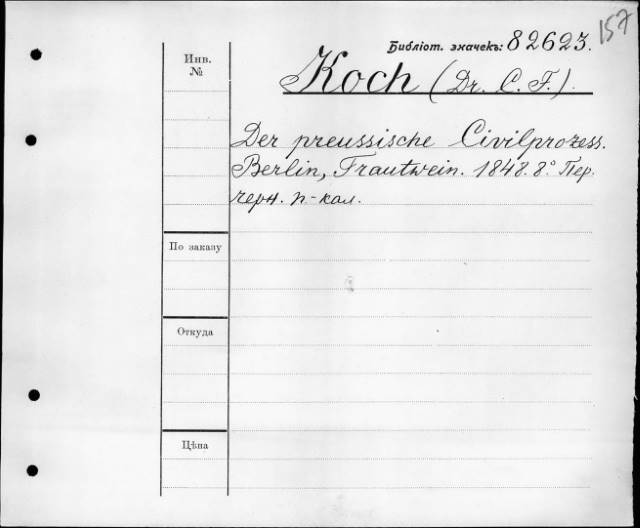 157
Библіот. значекъ: 82623.
Инв.
№
Koch (Dr. C. F.)
Der preussische Civilprozess.
Berlin, Trautwein. 1848. 8° Пер.
черн. п-кал.
По заказу
Откуда
Цѣна